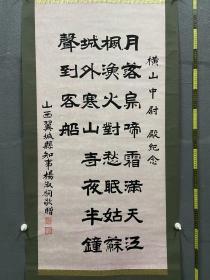 橫山中尉 殿紀念
月落烏啼霜滿天江
楓漁火對愁眠姑蘇
城外寒山寺夜半鐘
聲到客船
山西翼城縣知事楊淑向敬贈